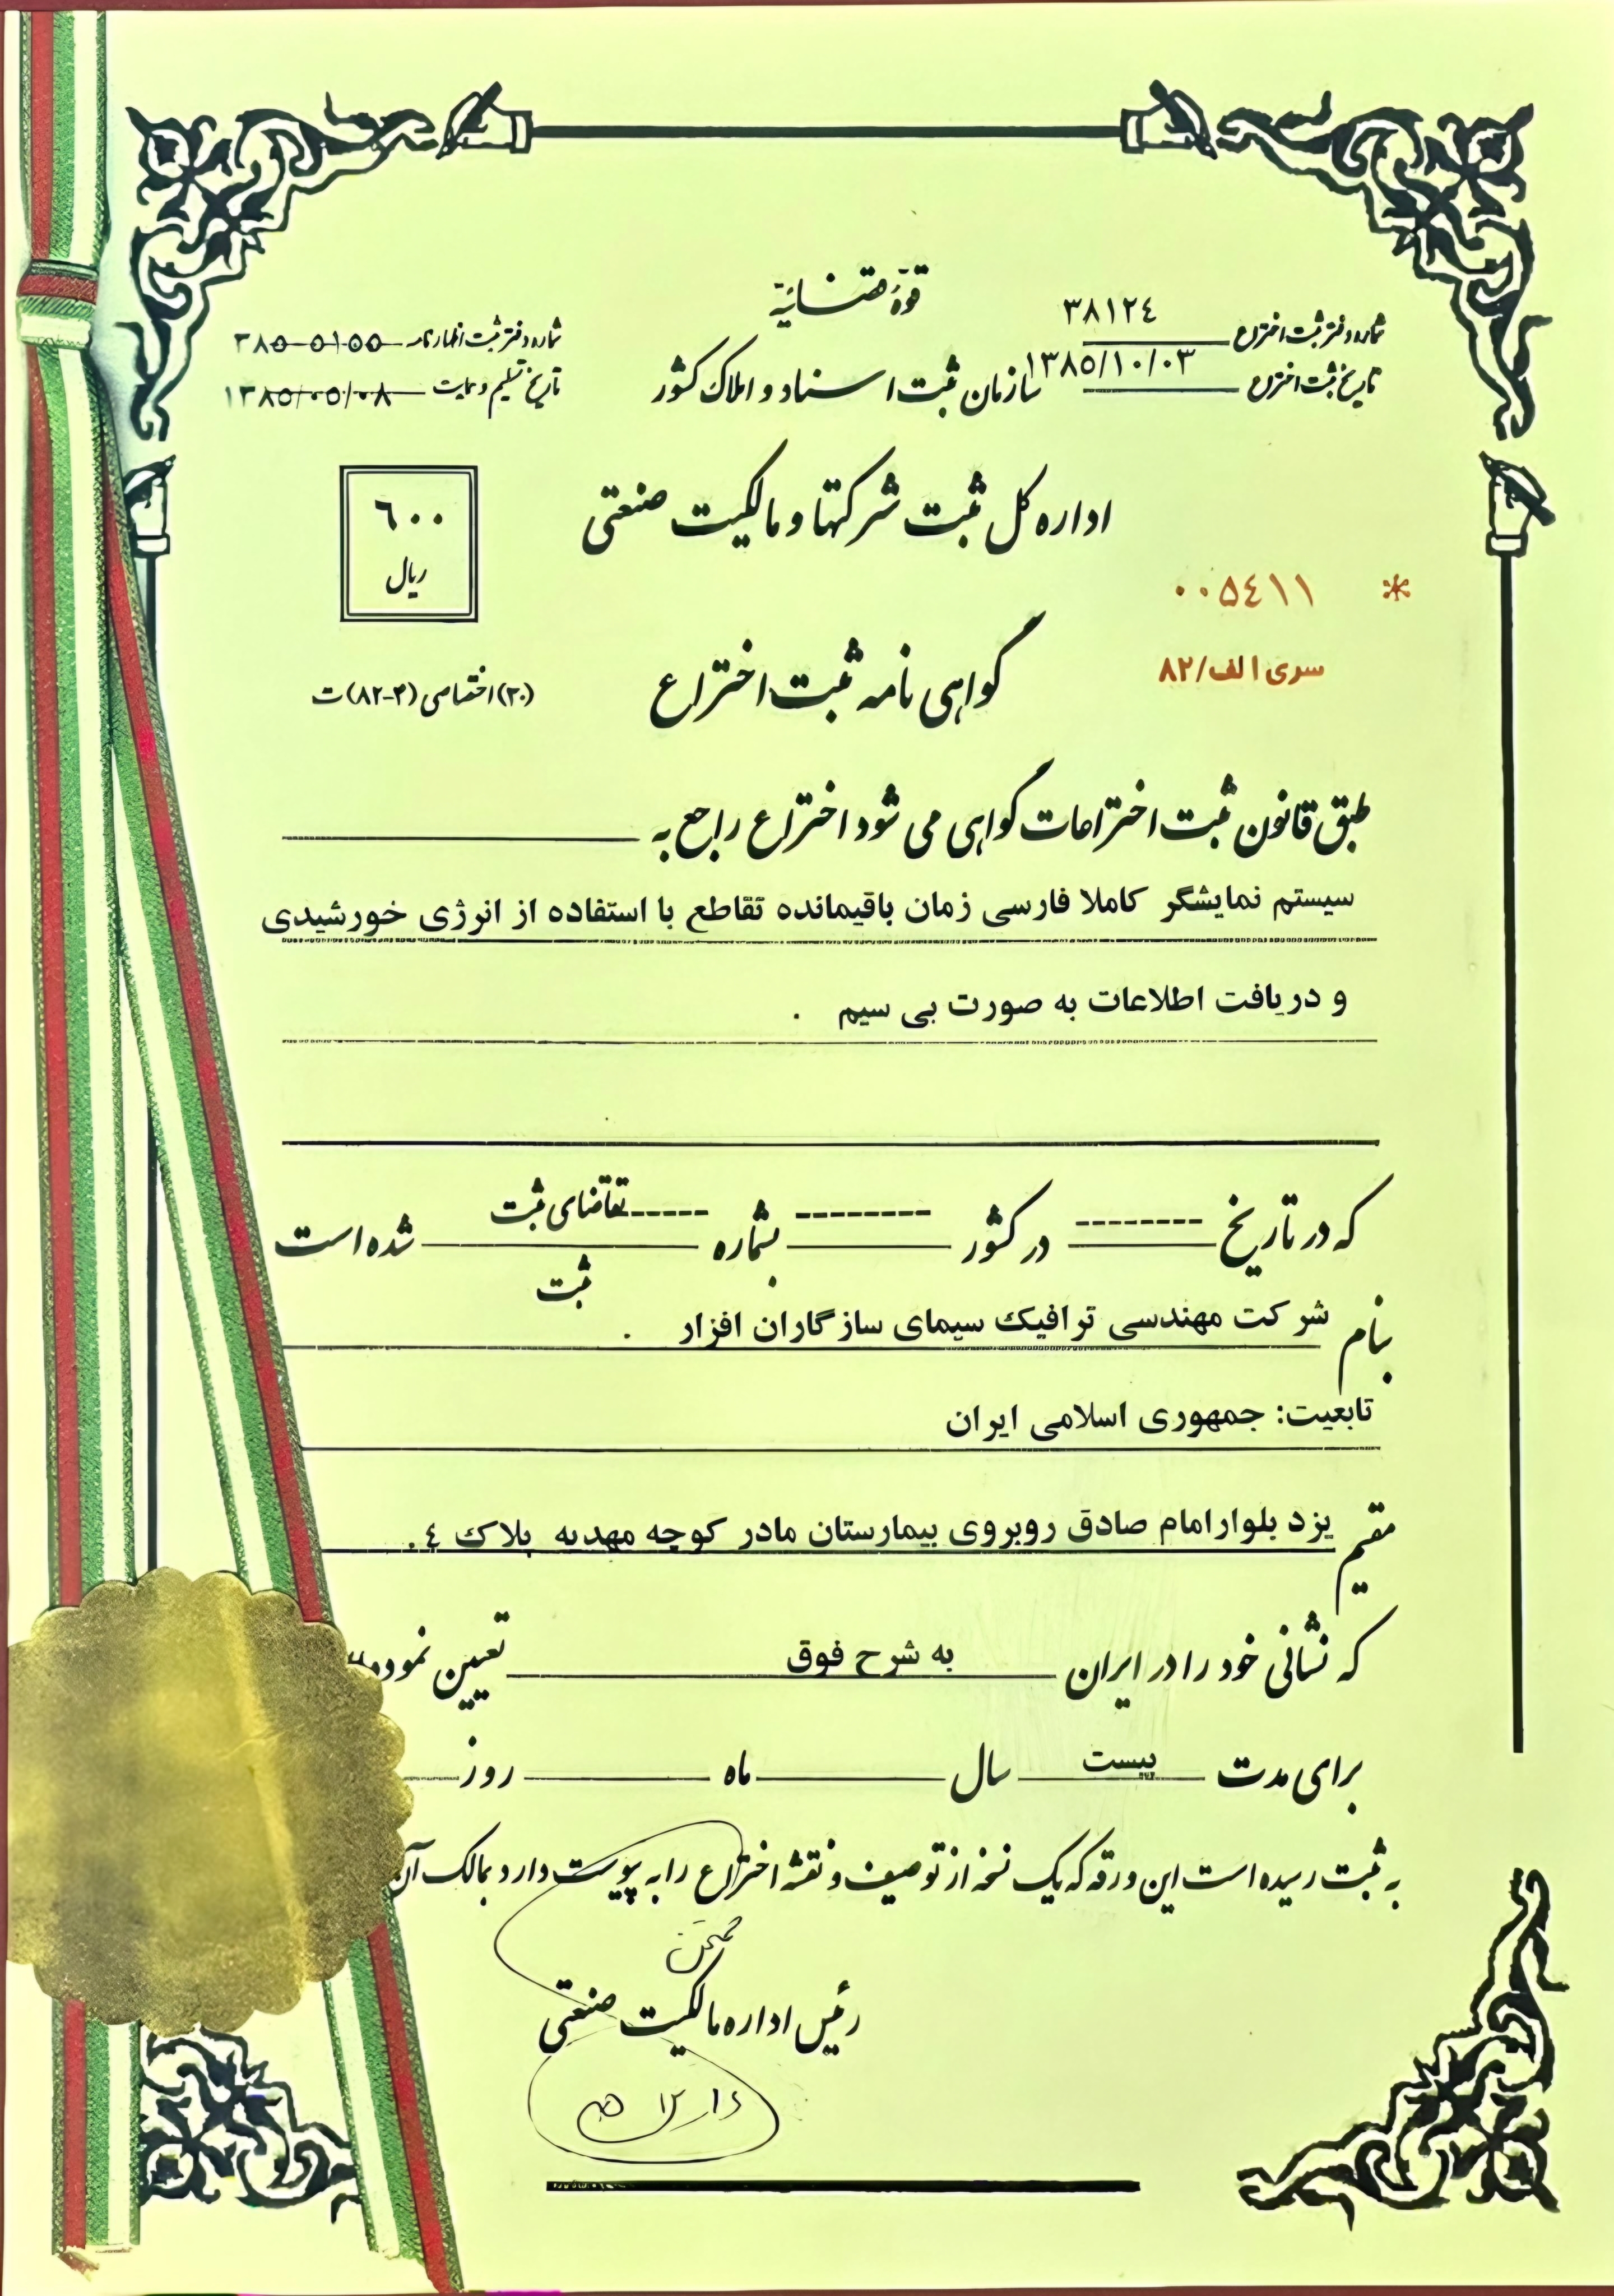 قوهٔ قضائیه
شماره دفتر ثبت اختراع ٣٨١٢٤
تاریخ ثبت اختراع ١٣٨٥/١٠/٠٣
سازمان ثبت اسناد و املاک کشور
شماره دفتر ثبت اظهارنامه ٣٨٥٠٥١٥٥
تاریخ تسلیم و ساعت ١٣٨٥/٠٥/٠٨
اداره کل ثبت شرکتها و مالکیت صنعتی
٦٠٠
ریال
٠٠٥٤١١ *
سری الف/٨٢
گواهی نامه ثبت اختراع
(۲۰) اختصاصی (۳-۸۲) ت
طبق قانون ثبت اختراعات گواهی می شود اختراع راجع به
سیستم نمایشگر کاملا فارسی زمان باقیمانده تقاطع با استفاده از انرژی خورشیدی
و دریافت اطلاعات به صورت بی سیم .
که در تاریخ -------- در کشور -------- بشماره ----- تقاضای ثبت شده است
ثبت
بنام شرکت مهندسی ترافیک سیمای سازگاران افزار .
تابعیت: جمهوری اسلامی ایران
مقیم یزد بلوار امام صادق روبروی بیمارستان مادر کوچه مهدیه پلاک ٤.
که نشانی خود را در ایران به شرح فوق تعیین نموده
برای مدت بیست سال ماه روز
به ثبت رسیده است این ورقه که یک نسخه از توصیف و نقشه اختراع را به پیوست دارد بمالک آن
رئیس اداره مالکیت صنعتی